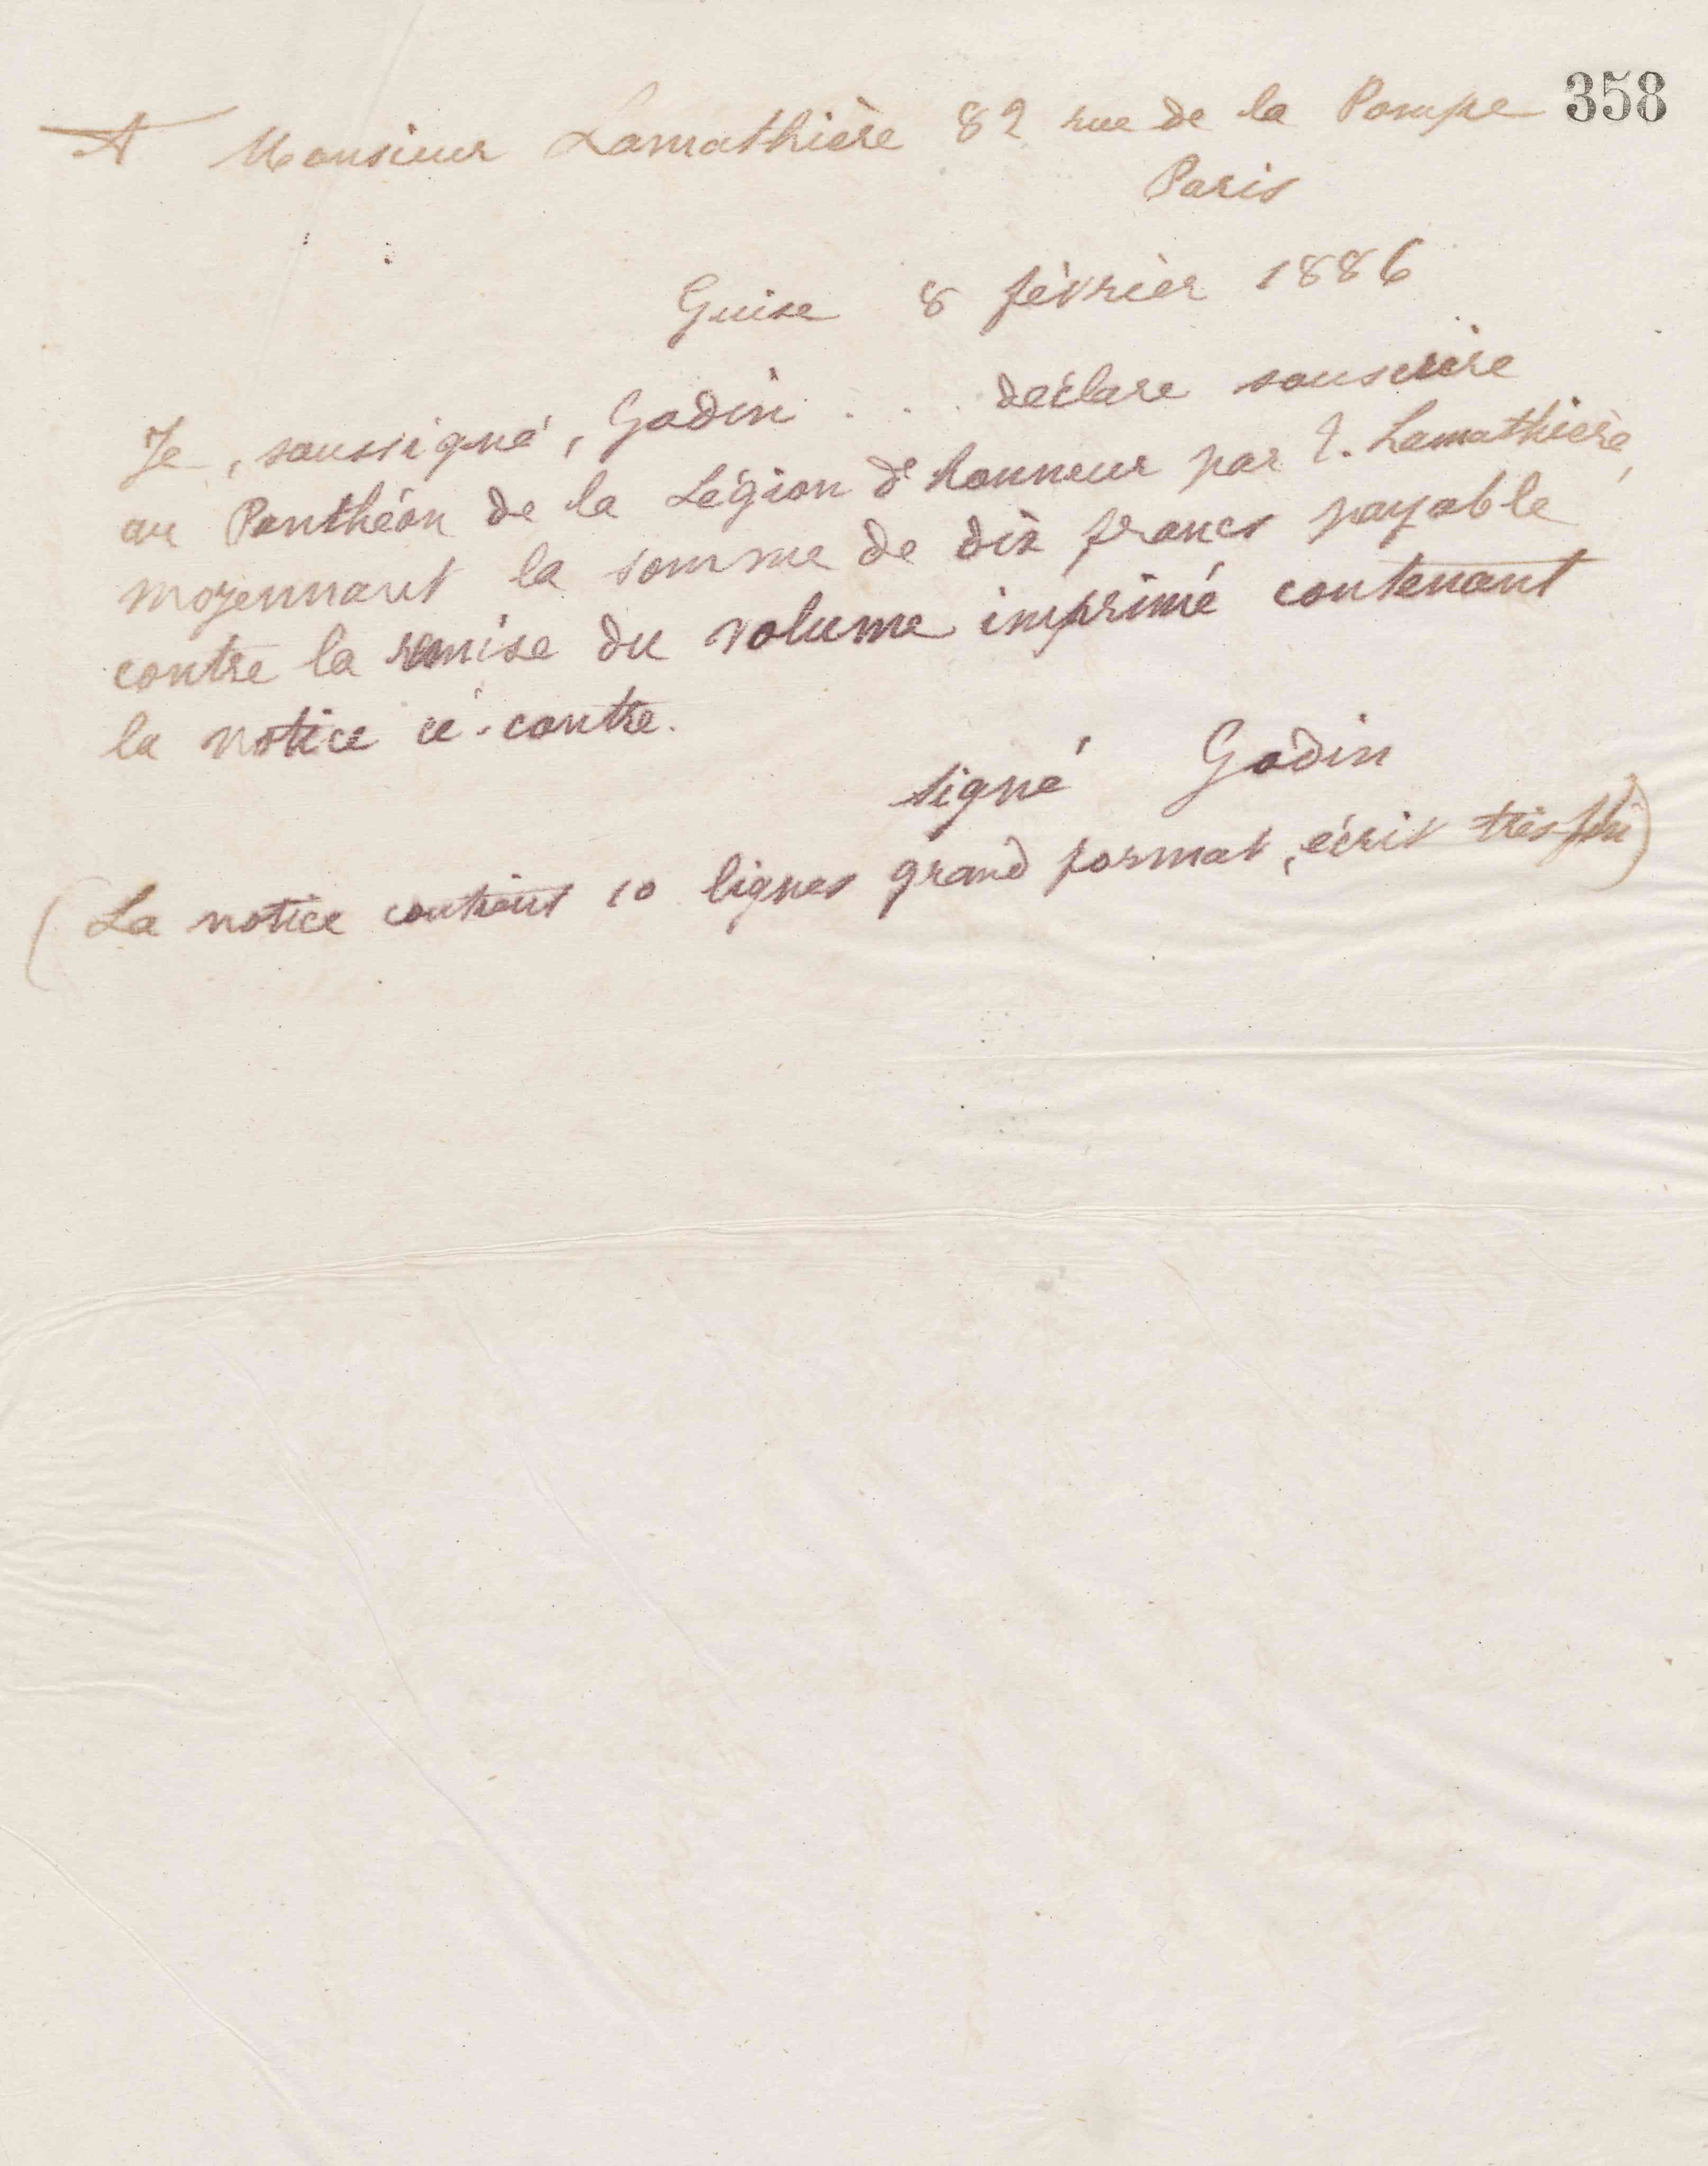 358
A Monsieur Lamathière 82 rue de la Pompe
Paris
Guise 8 février 1886
Je, soussigné, Godin . . . déclare souscrire
au Panthéon de la Légion d'honneur par T. Lamathière,
moyennant la somme de dix francs payable
contre la remise du volume imprimé contenant
la notice ci-contre.
signé Godin
(La notice contient 10 lignes grand format, écrit très fin)